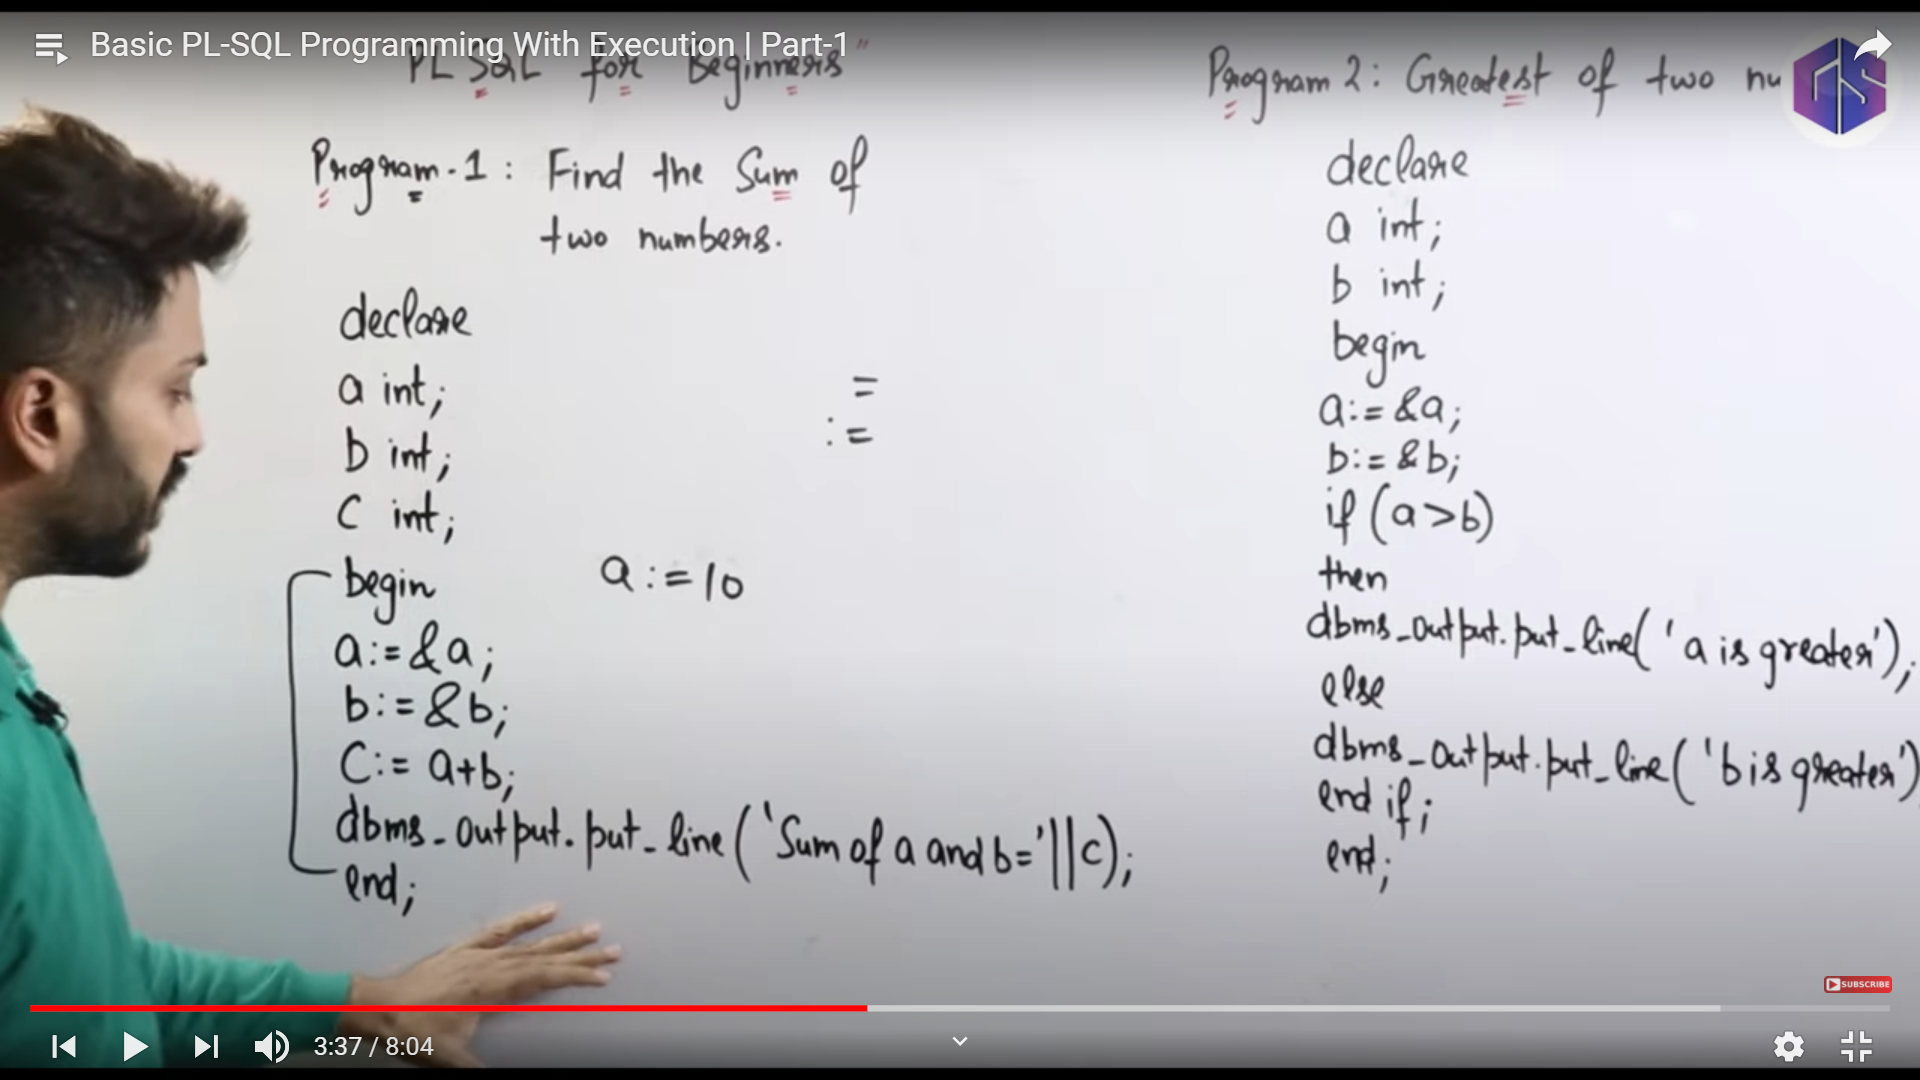 Basic PL-SQL Programming With Execution | Part-1
PL SQL for Beginners"
Program-1 : Find the Sum of
two numbers.
declare
a int;
b int;
c int;
begin
a:=&a;
b:=&b;
c:= a+b;
dbms_output.put_line('Sum of a and b='||c);
end;
=
:=
a:=10
Program 2: Greatest of two nu
declare
a int;
b int;
begin
a:=&a;
b:=&b;
if (a>b)
then
dbms_output.put_line('a is greater');
else
dbms_output.put_line('b is greater')
end if;
end;
SUBSCRIBE
3:37 / 8:04